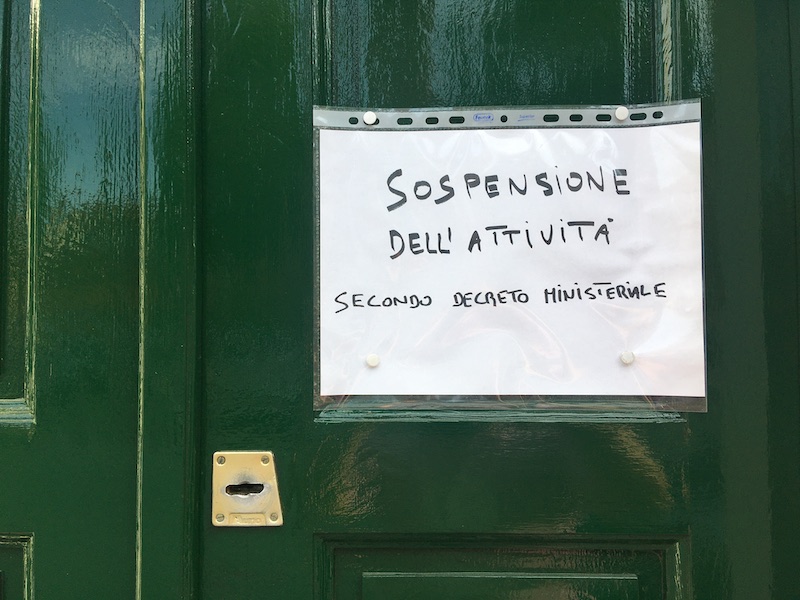 SOSPENSIONE
DELL'ATTIVITÀ
SECONDO DECRETO MINISTERIALE